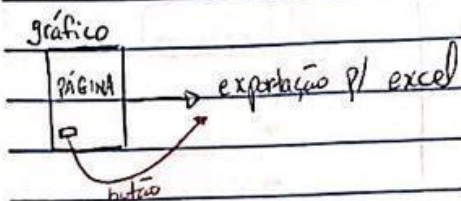 gráfico
PÁGINA
exportação p/ excel
butão